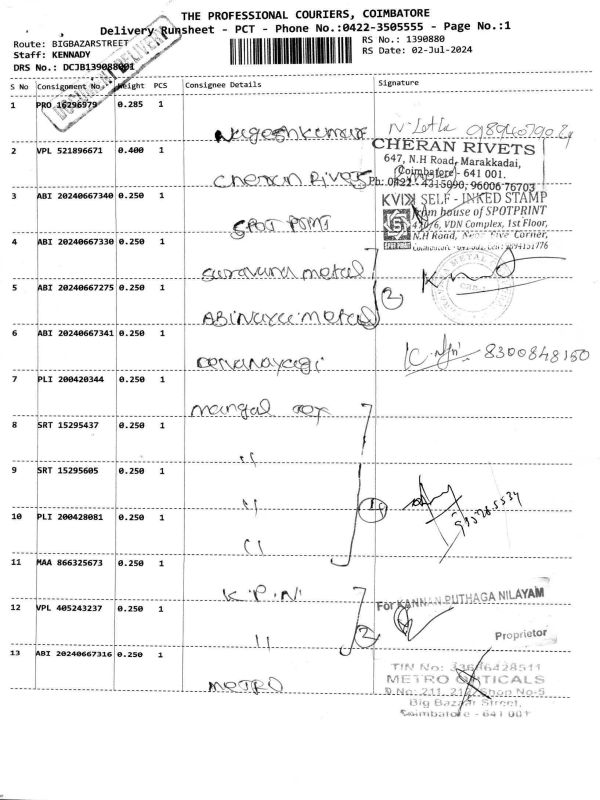 THE PROFESSIONAL COURIERS, COIMBATORE
Delivery Runsheet - PCT - Phone No.:0422-3505555 - Page No.:1
Route: BIGBAZARSTREET
RS No.: 1390880
Staff: KENNADY
RS Date: 02-Jul-2024
DRS No.: DCJB139088001
S No Consignment No. Weight PCS Consignee Details Signature
1 PRO 16296979 0.285 1
Nageshkumar
2 VPL 521896671 0.400 1
CHERAN RIVETS
647, N.H Road, Marakkadai,
Coimbatore - 641 001.
Cheran Rivets Ph: 0422 - 4315090, 96006 76703
3 ABI 20240667340 0.250 1
KVIK SELF - INKED STAMP
from house of SPOTPRINT
SPOT POINT
VDN Complex, 1st Floor,
4 ABI 20240667330 0.250 1
N.H Road,
Saravana metal
5 ABI 20240667275 0.250 1
2
Abinaya metal
6 ABI 20240667341 0.250 1
8300848150
7 PLI 200420344 0.250 1
mangal
8 SRT 15295437 0.250 1
"
9 SRT 15295605 0.250 1
"
10 PLI 200428081 0.250 1
"
11 MAA 866325673 0.250 1
K.P.N
For KANNAN PUTHAGA NILAYAM
12 VPL 405243237 0.250 1
"
2
Proprietor
13 ABI 20240667316 0.250 1
METRO
METRO OPTICALS
Big Bazaar Street,
Coimbatore - 641 001